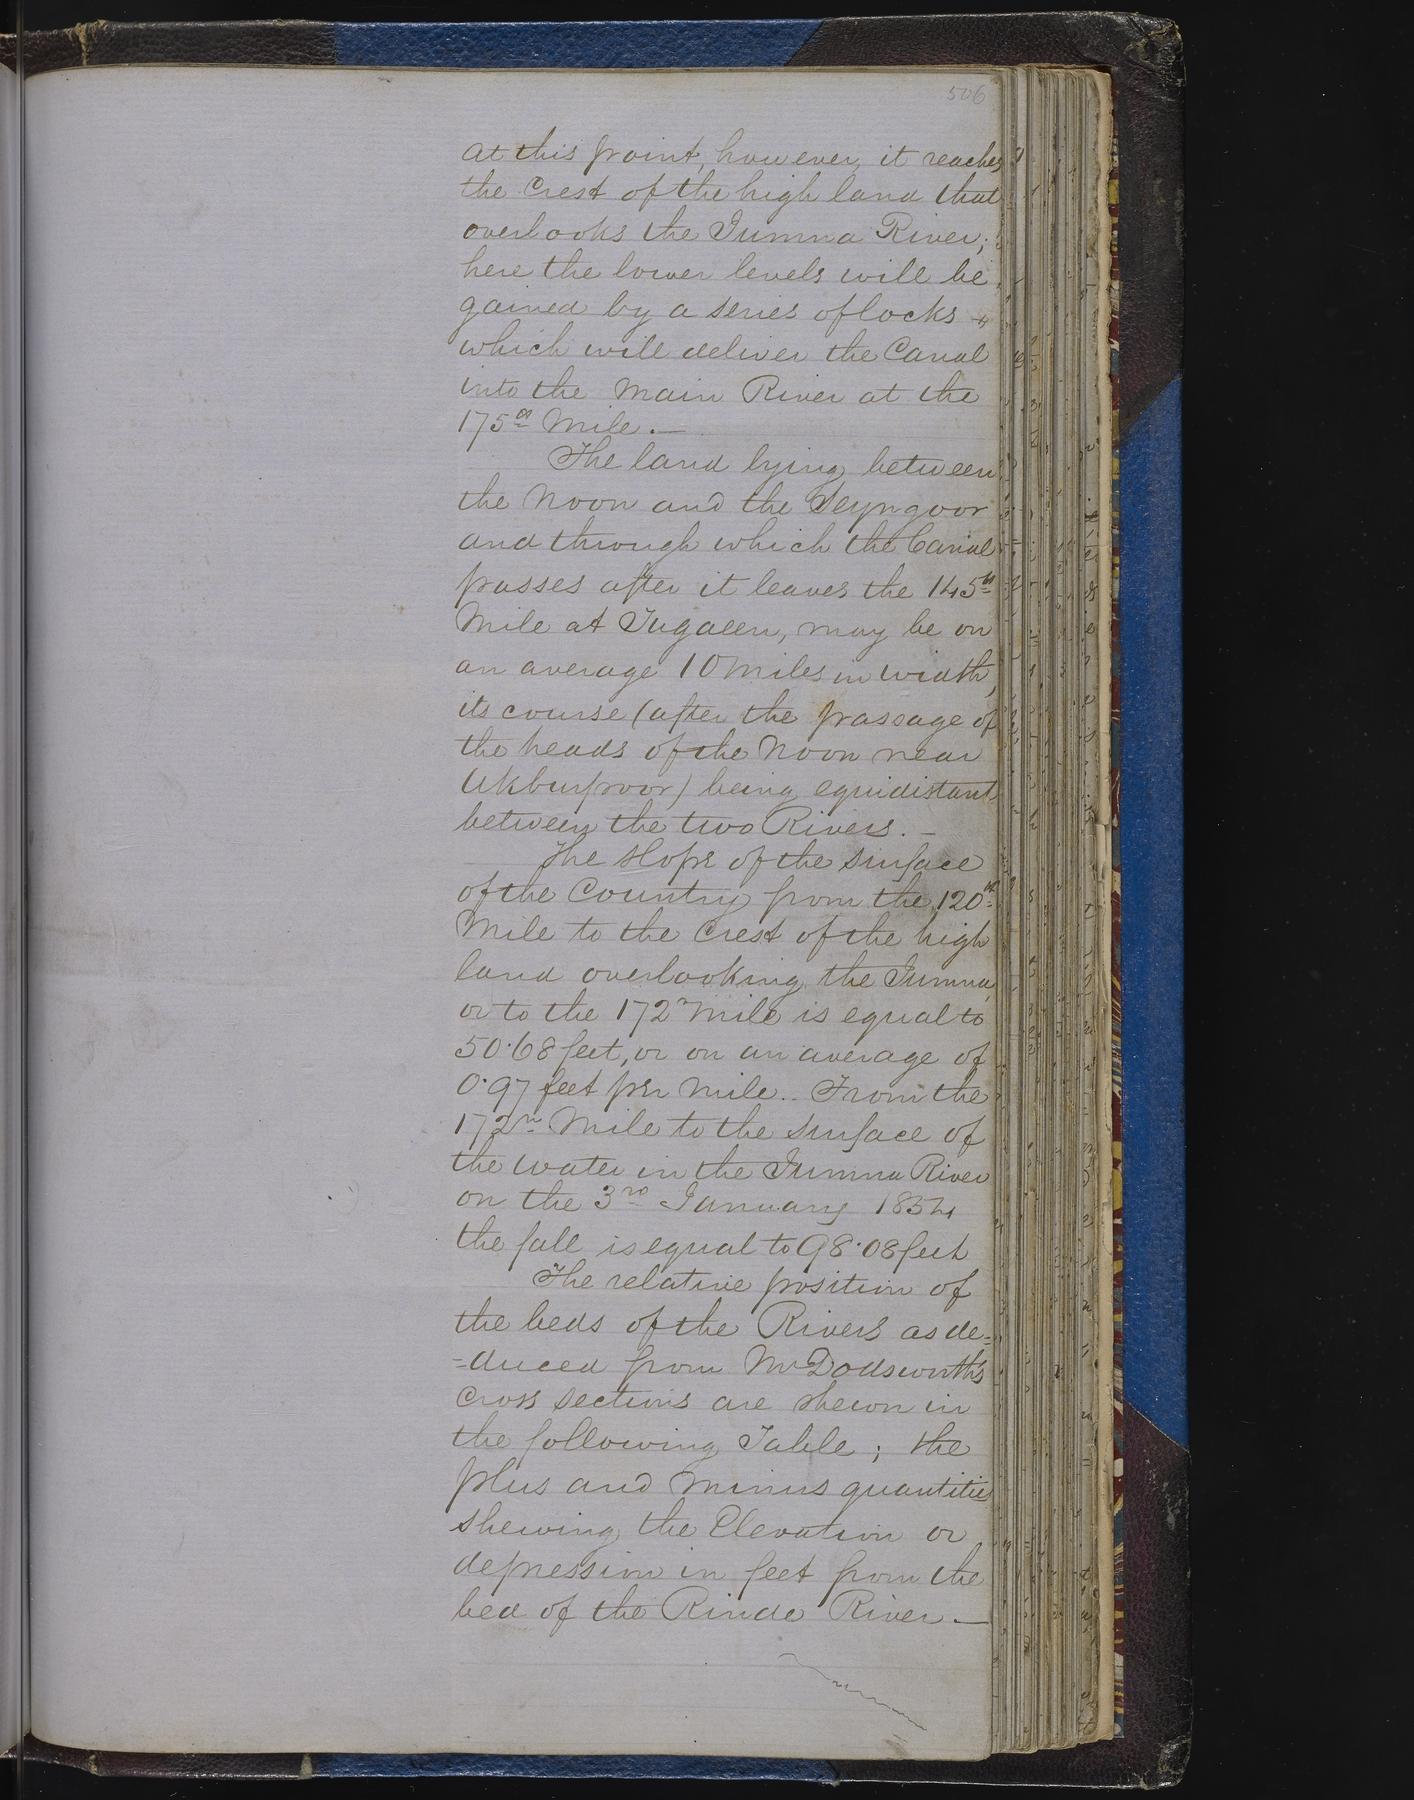 506
at this point, however, it reaches
the Crest of the high land that
overlooks the Jumna River;
here the lower levels will be
gained by a series of locks
which will deliver the Canal
into the Main River at the
175th Mile.—
The land lying between
the Noon and the Seyngoor
and through which the Canal
passes after it leaves the 145th
Mile at Jugaeen, may be on
an average 10 Miles in width,
its course (after the passage of
the heads of the Noon near
Ukburpoor) being equidistant
between the two Rivers.—
The slope of the surface
of the Country from the 120th
Mile to the Crest of the high
land overlooking the Jumna,
or to the 172n Mile is equal to
50.68 feet, or on an average of
0.97 feet per Mile. From the
172n Mile to the surface of
the water in the Jumna River
on the 3rd January 1854
the fall is equal to 98.08 feet
The relative position of
the beds of the Rivers as de=
=duced from Mr Dodsworth's
Cross Sections are shewn in
the following Table; the
plus and minus quantities
shewing the Elevation or
depression in feet from the
bed of the Rinde River.—